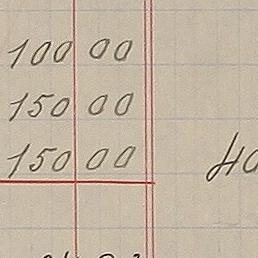 100 00
150 00
150 00